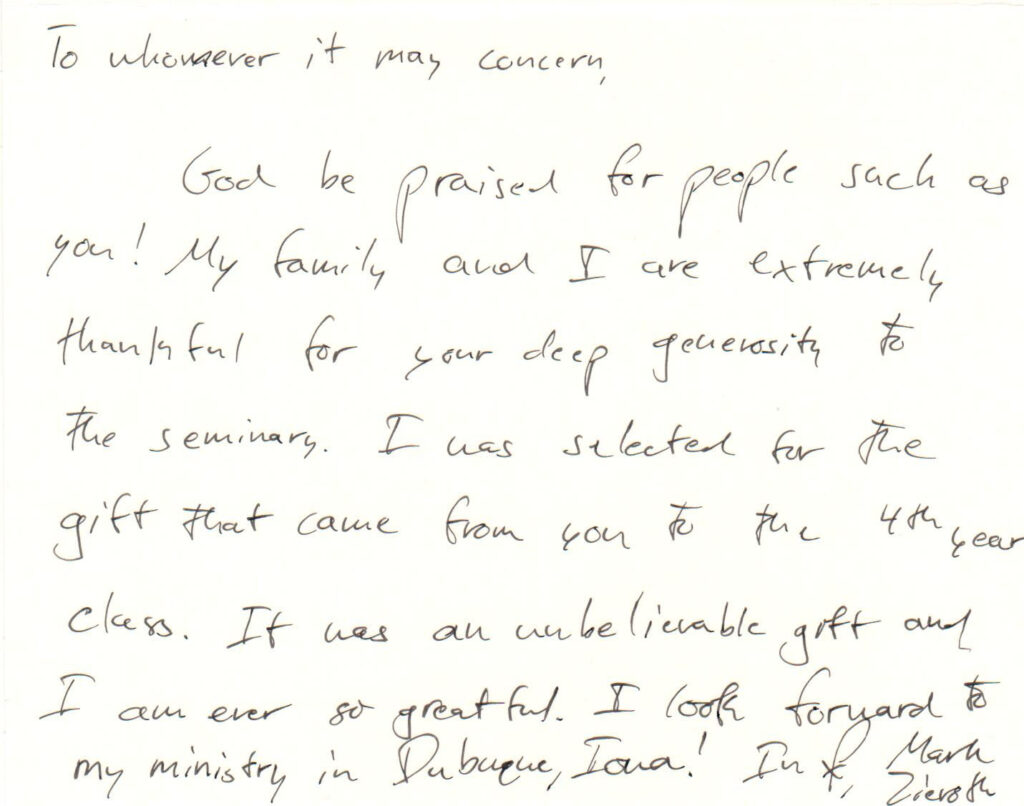 To whomever it may concern,
God be praised for people such as
you! My family and I are extremely
thankful for your deep generosity to
the seminary. I was selected for the
gift that came from you to the 4th year
class. It was an unbelievable gift and
I am ever so greatful. I look forward to
my ministry in Dubuque, Iowa! In Mark
Zieroth